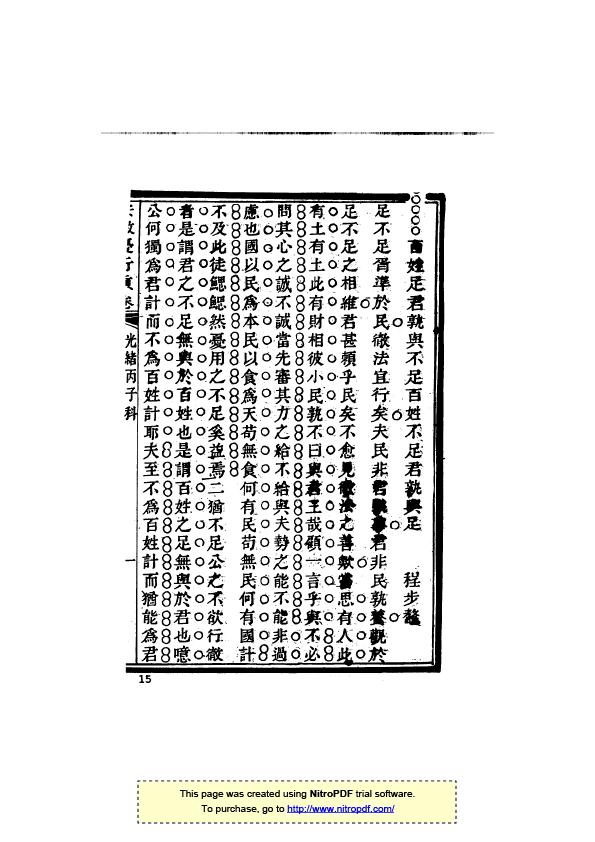 百姓足君孰與不足百姓不足君孰與足 程步鼇
足不足胥準於民徹法宜行矣夫民非君 君非民孰養觀於
足不足之相維君甚賴乎民矣不愈見徹法之善歟嘗思有人此
有土有土此有財相彼小民孰不曰與君王哉顧一言乎與不必
問其心之誠不誠當先審其力之給不給與夫勢之能不能非過
慮也國以民為本民以食為天苟無食何有民苟無民何有國計
不及此徒鰓鰓然憂用之不足奚益焉二猶不足公之不欲行徹
者是謂君之不足無與於百姓也是謂百姓之足無與於君也噫
公何獨為君計而不為百姓計耶夫至不為百姓計而猶能為君
卷 光緒丙子科 一
15
This page was created using NitroPDF trial software.
To purchase, go to http://www.nitropdf.com/